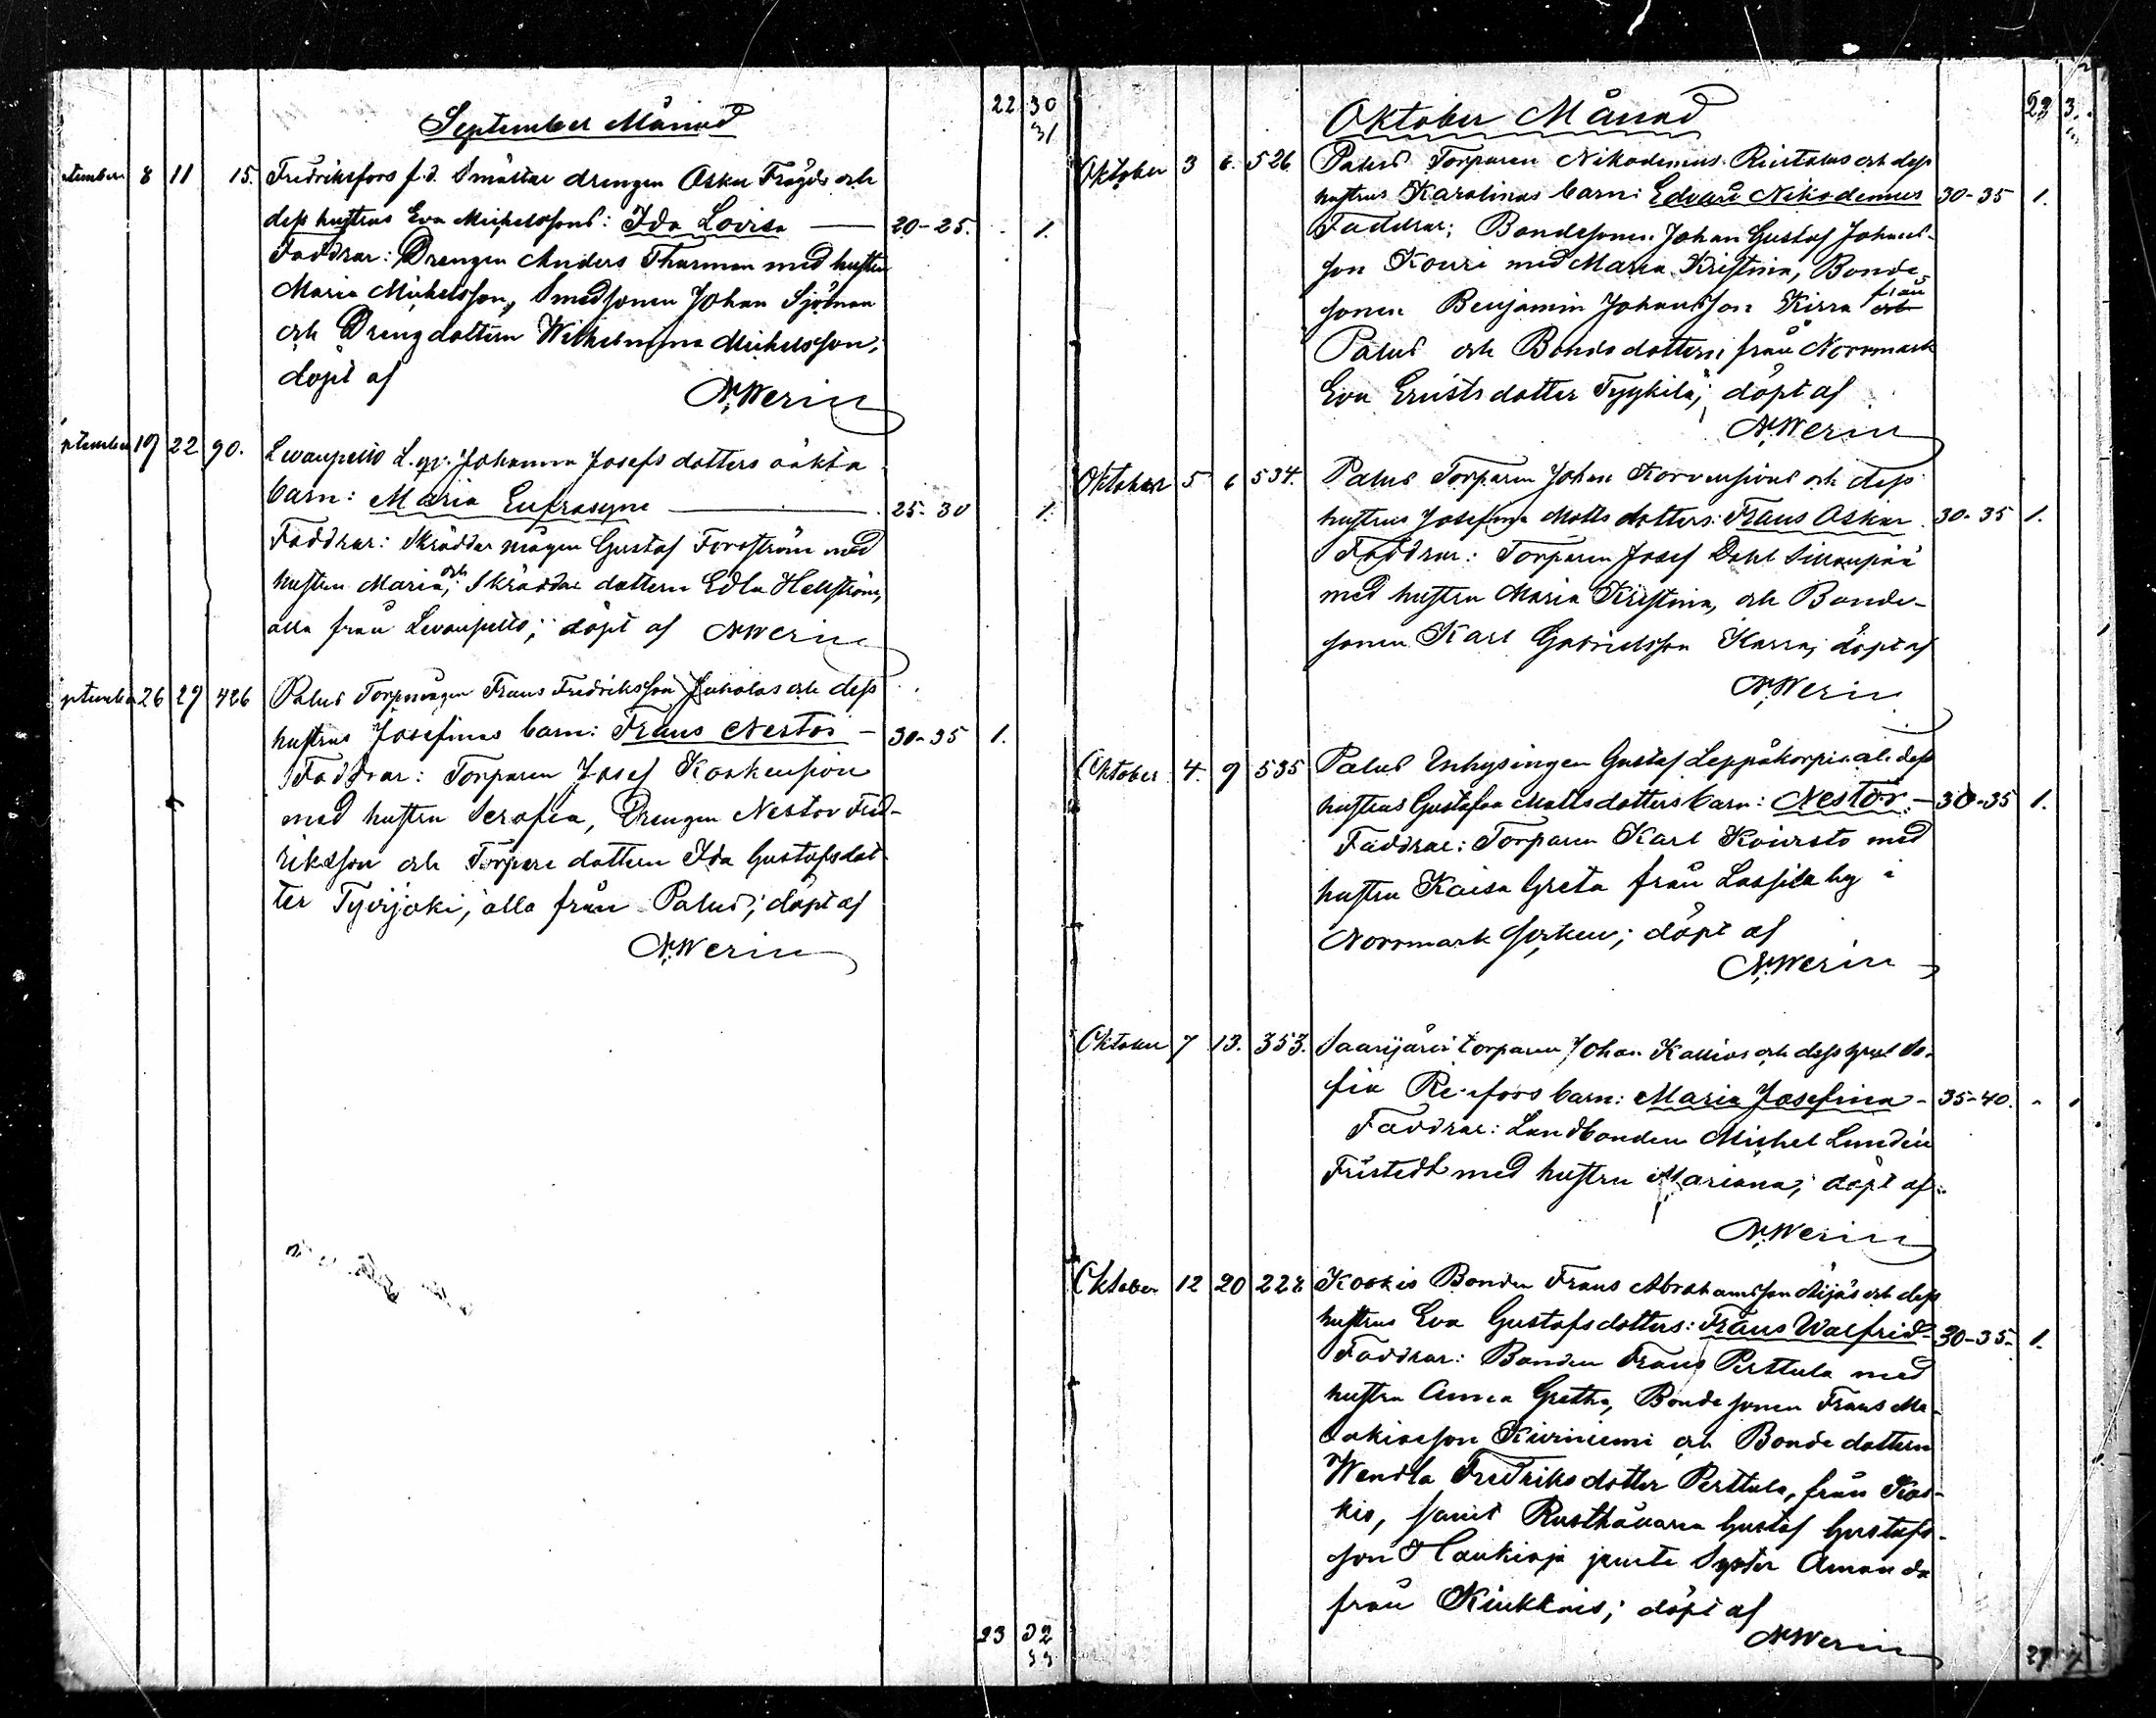 22 30
31
September Månad
tember 8 11 15. Fredriksfors f.d. Smästar drengen Oskar Frögds och
dess hustrus Eva Michelssons: Ida Lovisa 20-25. 1.
Faddrar: Drengen Anders Thurman med hustru
Maria Michelsson, Smedsonen Johan Sjöman
och Drengdottern Wilhelmina Michelsson;
döpt af
N. Werin
ptember 19 22 90. Levanpelto L. qv. Johanna Josefsdotters oäkta
barn: Maria Eufrosyne 25-30 1.
Faddrar: Skräddar mågen Gustaf Forsström med
hustru Maria, och Skräddare dottern Edla Hellström,
alla från Levanpelto; döpt af N. Werin
ptember 26 29 426 Palus Torpmågen Frans Fredriksson Juholas och dess
hustrus Josefinas barn: Frans Nestor - 30-35 1.
Faddrar: Torparen Josef Koskension
med hustru Serafia, Drengen Nestor Fred-
riksson och Torpare dottern Ida Gustafsdot-
ter Tyvijoki, alla från Palus; döpt af
N. Werin
23 32
33
23 3
Oktober Månad
Oktober 3 6. 526 Palus Torparen Nikodemus Rintalas och dess
hustrus Karolinas barn: Edvard Nikodemus 30-35 1.
Faddrar: Bondesonen Johan Gustaf Johans-
son Kouri med Maria Kristina, Bonde-
sonen Benjamin Johansson Kirra från
Palus och Bondedottern från Norrmark
Eva Ernstsdotter Tyykilä; döpt af
N. Werin
Oktober 5 6 534. Palus Torparen Johan Korvensions och dess
hustrus Josefina Mattsdotters: Frans Oskar. 30-35 1.
Faddrar: Torparen Josef Dahl Sillanpää
med hustru Maria Kristina, och Bonde-
sonen Karl Gabrielsson Karra; döpt af
N. Werin
Oktober 4. 9 535 Palus Inhysingen Gustaf Leppäkorpis och dess
hustrus Gustafva Mattsdotters barn: Nestor. - 30-35 1.
Faddrar: Torparen Karl Koivisto med
hustru Kaisa Greta från Lassila by i
Norrmark socken; döpt af
N. Werin
Oktober 7 13. 353. Saarijärvi torparen Johan Kallios och dess hustrus So-
fia barn: Maria Josefina - 35-40.
Faddrar: Landbonden Michel Lundén
Fristedt med hustru Mariana; döpt af
N. Werin
Oktober 12 20 228 Kookis Bonden Frans Abrahamsson Äijäs och dess
hustrus Eva Gustafsdotters: Frans Walfrid - 30-35. 1.
Faddrar: Bonden Frans Perttula med
hustru Anna Gretha, Bondesonen Frans
Kiviniemi och Bondedottern
Wendla Fredriksdotter Perttula, från Koo-
kis, samt Rusthållaren Gustaf Gustafs-
son Haukioja jemte Syster Amanda
från Kiukkois; döpt af
N. Werin
27